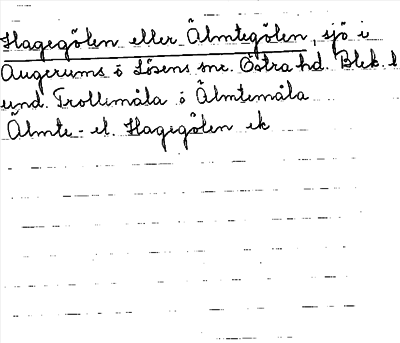 Hagegölen eller Älmtegölen, sjö i
Augerums o Lösens snr. Östra hd. Blek. l
und. Trollemåla o Älmtemåla
Älmte- el. Hagegölen ek